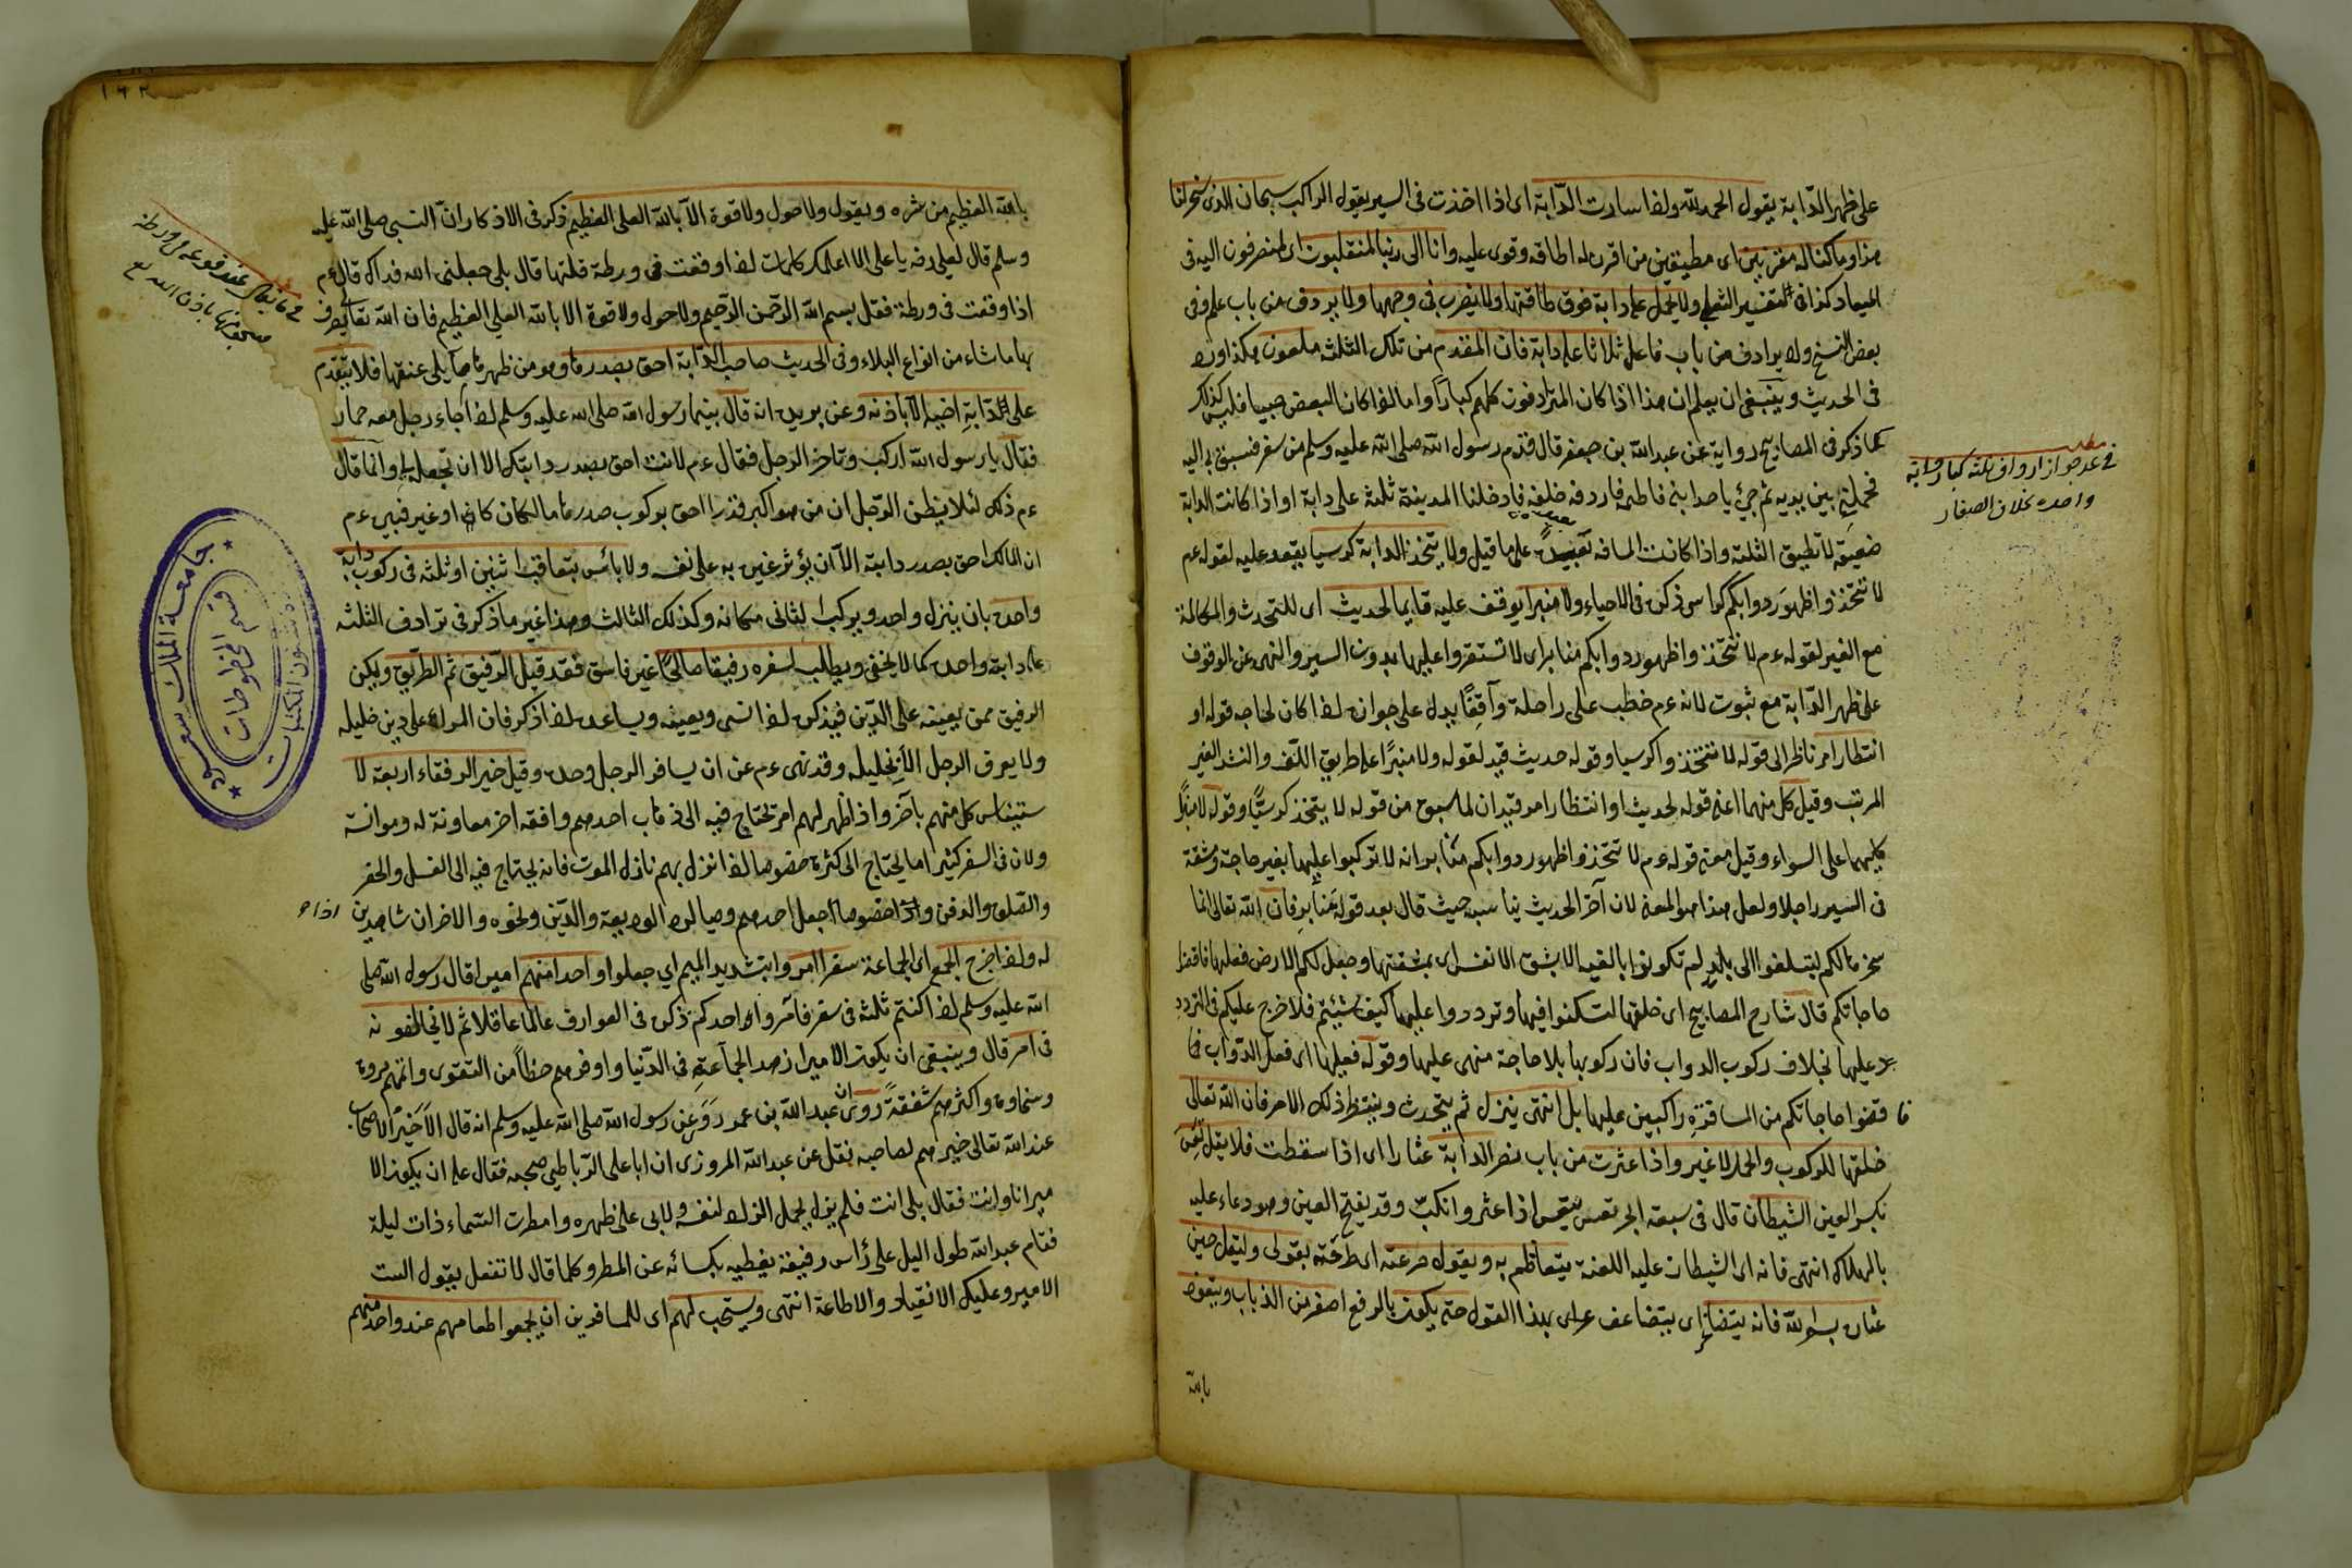 على ظهر الدابة يقول الحمد لله ولذا سارت الدابة اى اذا اخذت فى السير يقول الراكب سبحان الذى سخر لنا
هذا وما كنا له مقرنين اى مطيقين من اقرن له اطاقه وقوى عليه وانا الى ربنا لمنقلبون اى لمنصرفون اليه فى
الميعاد كذا فى التفسير الثعلبى ولا يحمل على دابة فوق طاقتها ولا يضرب فى وجهها ولا يردف من باب علم وفى
بعض النسخ ولا يرادف من باب فاعل ثلاثا على دابة فان المقدم من تلك الثلثة ملعون هكذا ورد
فى الحديث وينبغى ان يعلم ان هذا اذا كان المترادفون كلهم كبارا واما لذا كان البعض صبيا فليس كذلك
كما ذكر فى المصابيح رواية عن عبد الله بن جعفر قال قدم رسول الله صلى الله عليه وسلم من سفر فسبق بى اليه
فحملنى بين يديه ثم جئ باحد ابنى فاطمة فاردفه خلفه فادخلنا المدينة ثلثة على دابة او اذا كانت الدابة
ضعيفة لا تطيق الثلثة واذا كانت المسافة بعيدة على ما قيل ولا يتخذ الدابة كرسيا يقعد عليه لقوله عم
لا تتخذوا ظهور دوابكم كراسى ذكره فى الاحياء ولا منبرا يوقف عليه قايما لحديث اى للتحدث والمكالمة
مع الغير لقوله عم لا تتخذوا ظهور دوابكم منابر اى لا تستقروا عليها بدون السير والنهى عن الوقوف
على ظهر الدابة مع ثبوت لانه عم خطب على راحلة واقفا يدل على جوازه لذا كان لحاجة قوله او
انتظار امر ناظر الى قوله لا تتخذوا كرسيا وقوله حديث قيد لقوله ولا منبرا على طريق اللف والنشر الغير
المرتب وقيل كل منهما اعنى قوله لحديث او انتظار امر قيدان لما سبق من قوله لا يتخذ كرسيا وقوله لا منبرا
كليهما على السواء وقيل معنى قوله عم لا تتخذوا ظهور دوابكم منابر انه لا تركبوا عليها بغير حاجة ومشقة
فى السير راجلا ولعل هذا هو المعنى لان آخر الحديث يناسبه حيث قال بعد قوله منابر فان الله تعالى انما
سخرها لكم لتبلغوا الى بلد لم تكونوا بالغيه الا بشق الانفس اى بمشقتها وجعل لكم الارض فعليها فاقضوا
حاجاتكم قال شارح المصابيح اى خلقها لتسكنوا فيها وترددوا عليها كيف شئتم فلا حرج عليكم فى التردد
عليها بخلاف ركوب الدواب فان ركوبها بلا حاجة منهى عليها وقوله فعليها اى فعلى الدواب فا
فا قضوا حاجاتكم من المسافرة راكبين عليها بل انتهى ينزل ثم يتحدث وينتظر ذلك الامر فان الله تعالى
خلقها للركوب والحمل لا غير واذا عثرت من باب نصر الدابة عثارا اى اذا سقطت فلا يقل تعس
بكسر العين الشيطان قال فى سبعة ابحر تعس يتعس اذا عثر وانكب وقد يفتح العين وهو دعاء عليه
بالهلاك انتهى فانه اى الشيطان عليه اللعنة يتعاظم به ويقول صرعته اى طرحته بقولى وليقل حين
عثار بسم الله فانه يتصاغر اى يتضاعف على بهذا القول حتى يكون بالرفع اصغر من الذباب ويتعوذ
بالله
مطلب
فى عدم جواز ارداف ثلثة كبار دابة
واحدة بخلاف الصغار
١٦٢
بالله العظيم من شره ويقول ولا حول ولا قوة الا بالله العلى العظيم ذكر فى الاذكار ان النبى صلى الله عليه
وسلم قال لعلى رضه يا على الا اعلمك كلمات لذا وقعت فى ورطة قلتها قال بلى جعلنى الله فداك قال عم
اذا وقعت فى ورطة فقل بسم الله الرحمن الرحيم ولا حول ولا قوة الا بالله العلى العظيم فان الله تعالى يصرف
بها ما شاء من انواع البلاء وفى الحديث صاحب الدابة احق بصدرها وهو من ظهرها ما يلى عنقها فلا يتقدم
على الدابة اخيه الا باذنه وعن بريدة انه قال بينما رسول الله صلى الله عليه وسلم لذا جاء رجل معه حمار
فقال يا رسول الله اركب وتاخر الرجل فقال عم لا انت احق بصدر دابتك الا ان تجعله لى وانما قال
عم ذلك لئلا يظن الرجل ان من هو اكبر قدرا احق بركوب صدرها مالكا كان او غيره فبين عم
ان المالك احق بصدر دابته الا ان يؤثر غيره به على نفسه ولا بأس بتعاقب اثنين او ثلثة فى ركوب دابة
واحدة بان ينزل واحد ويركب الثانى مكانه وكذلك الثالث وهذا غير ما ذكر فى ترادف الثلثة
على دابة واحدة كما لا يخفى ويطلب لسفره رفيقا صالحا غير فاسق فقد قيل الرفيق ثم الطريق ويكن
الرفيق ممن يعينه على الدين فيذكره لذا نسى ويعينه ويساعده لذا ذكر فان المرء على دين خليله
ولا يعرف الرجل الا بخليله وقد نهى عم عن ان يسافر الرجل وحده وقيل خير الرفقاء اربعة لا
ستيناس كل منهم بآخر واذا ظهر لهم امر تحتاج فيه الى ذهاب احدهم وافقه اخر معاونة له وموانسة
ولان فى السفر كثيرا ما يحتاج الى كثرة خصوصا لذا نزل بهم نازل الموت فانه يحتاج فيه الى الغسل والحفر
والصلوة والدفن خصوصا اذا جعل احدهم وصيا لرد الوديعة والدين ونحوه والاخران شاهدين
له ولذا خرج الجمع اى الجماعة سفرا امروا بتشديد الميم اى جعلوا واحدا منهم اميرا قال رسول الله صلى
الله عليه وسلم لذا كنتم ثلثة فى سفر فأمروا احدكم ذكره فى العوارف عالما عاقلا ثم لا يخالفونه
فى امر قال وينبغى ان يكون الامير ازهد الجماعة فى الدنيا واوفرهم حظا من التقوى واتمهم مروة
وسخاوة واكثرهم شفقة روى ان عبد الله بن عمر روى عن رسول الله صلى الله عليه وسلم انه قال الا خير الاصحاب
عند الله تعالى خيرهم لصاحبه نقل عن عبد الله المروزى ان ابا على الرباطى صحبه فقال على ان يكون الا
مير انا او انت فقال بلى انت فلم يزل يحمل الزاد لنفسه ولابى على ظهره وامطرت السماء ذات ليلة
فقام عبد الله طول اليل على رأس رفيقه يغطيه بكسائه عن المطر وكلما قال لا تفعل يقول الست
الامير وعليك الانقياد والاطاعة انتهى ويستحب لهم اى للمسافرين ان يجمعوا طعامهم عند واحد منهم
جامعة الملك سعود
قسم المخطوطات
شئون المكتبات